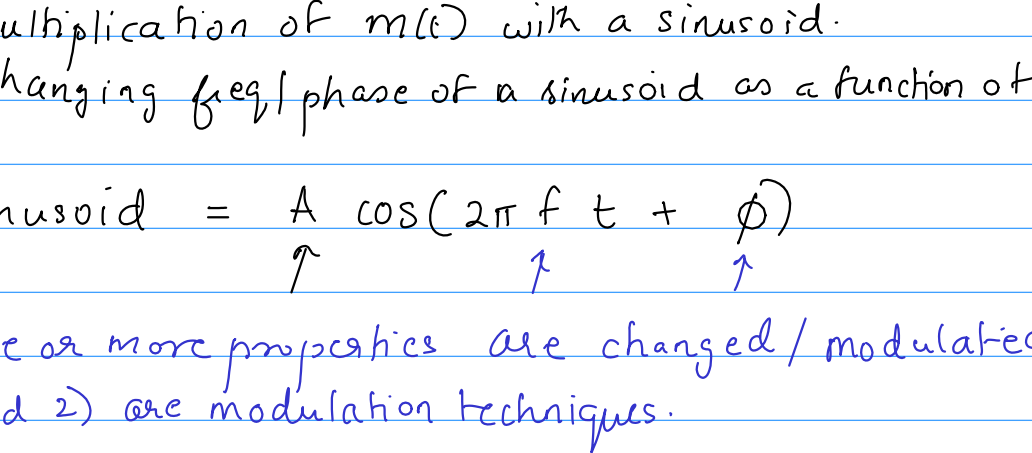 ultiplication of m(t) with a sinusoid.
hanging freq/phase of a sinusoid as a function of
nusoid = A cos(2π f t + ϕ)
↑ ↑ ↑
e or more properties are changed/modulated
d 2) are modulation techniques.